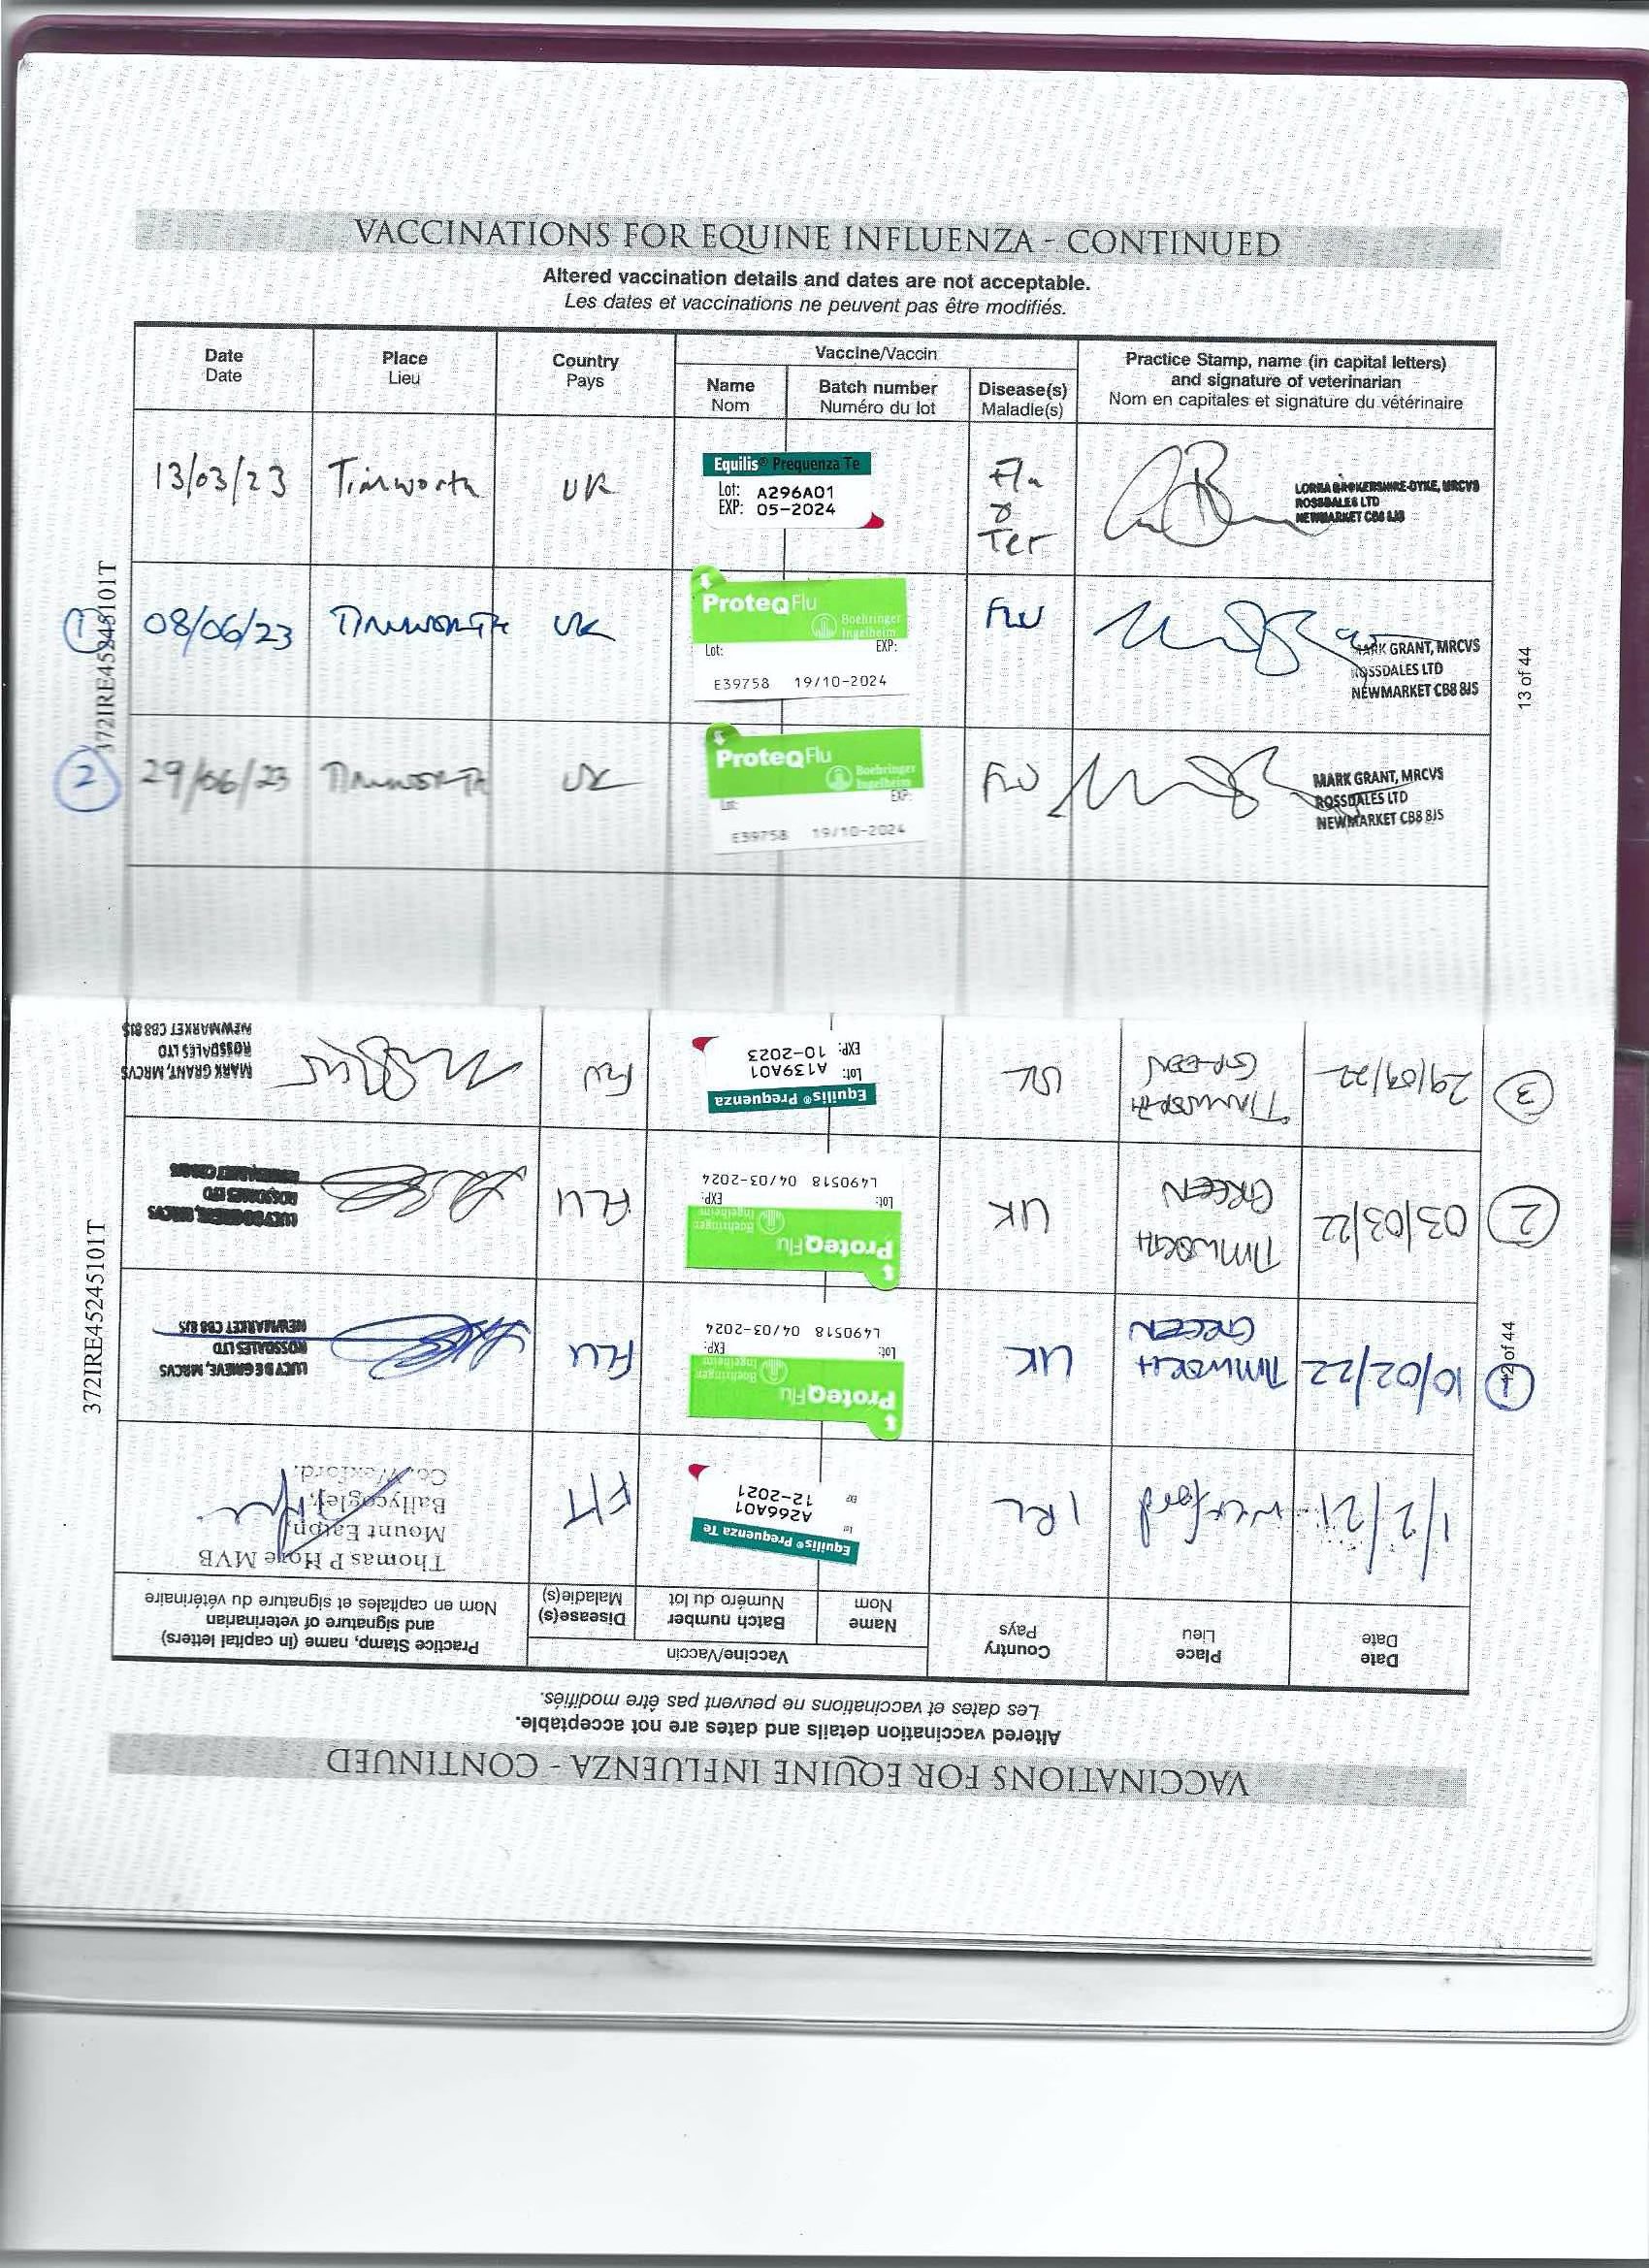 VACCINATIONS FOR EQUINE INFLUENZA - CONTINUED
Altered vaccination details and dates are not acceptable.
Les dates et vaccinations ne peuvent pas être modifiés.
Date
Date
Place
Lieu
Country
Pays
Vaccine/Vaccin
Name
Nom
Batch number
Numéro du lot
Disease(s)
Maladie(s)
Practice Stamp, name (in capital letters)
and signature of veterinarian
Nom en capitales et signature du vétérinaire
13/03/23
Timworth
UK
Equilis® Prequenza Te
Lot: A296A01
EXP: 05-2024
Flu
&
Tet
MRCVS
ROSSDALES LTD
NEWMARKET CB8 8JS
1
08/06/23
TIMWORTH
UK
ProteqFlu
Boehringer
Ingelheim
Lot: EXP:
E39758 19/10-2024
FLU
MARK GRANT, MRCVS
ROSSDALES LTD
NEWMARKET CB8 8JS
2
29/06/23
TIMWORTH
UK
ProteqFlu
Boehringer
Ingelheim
Lot: EXP:
E39758 19/10-2024
FLU
MARK GRANT, MRCVS
ROSSDALES LTD
NEWMARKET CB8 8JS
372IRE45245101T
13 of 44
VACCINATIONS FOR EQUINE INFLUENZA - CONTINUED
Altered vaccination details and dates are not acceptable.
Les dates et vaccinations ne peuvent pas être modifiés.
Date
Date
Place
Lieu
Country
Pays
Vaccine/Vaccin
Name
Nom
Batch number
Numéro du lot
Disease(s)
Maladie(s)
Practice Stamp, name (in capital letters)
and signature of veterinarian
Nom en capitales et signature du vétérinaire
1/2/21
Wexford
IRL
Equilis® Prequenza Te
Lot A266A01
EXP 12-2021
F/T
Thomas P Hore MVB
Mount Eaton,
Ballycogley,
Co. Wexford.
1
10/02/22
TIMWORTH
GREEN
UK
ProteqFlu
Boehringer
Ingelheim
Lot: EXP:
L490518 04/03-2024
FLU
LUCY DE GRIEVE, MRCVS
ROSSDALES LTD
NEWMARKET CB8 8JS
2
03/03/22
TIMWORTH
GREEN
UK
ProteqFlu
Boehringer
Ingelheim
Lot: EXP:
L490518 04/03-2024
FLU
LUCY DE GRIEVE, MRCVS
ROSSDALES LTD
NEWMARKET CB8 8JS
3
29/09/22
TIMWORTH
GREEN
UK
Equilis® Prequenza
Lot: A139A01
EXP: 10-2023
FLU
MARK GRANT, MRCVS
ROSSDALES LTD
NEWMARKET CB8 8JS
12 of 44
372IRE45245101T